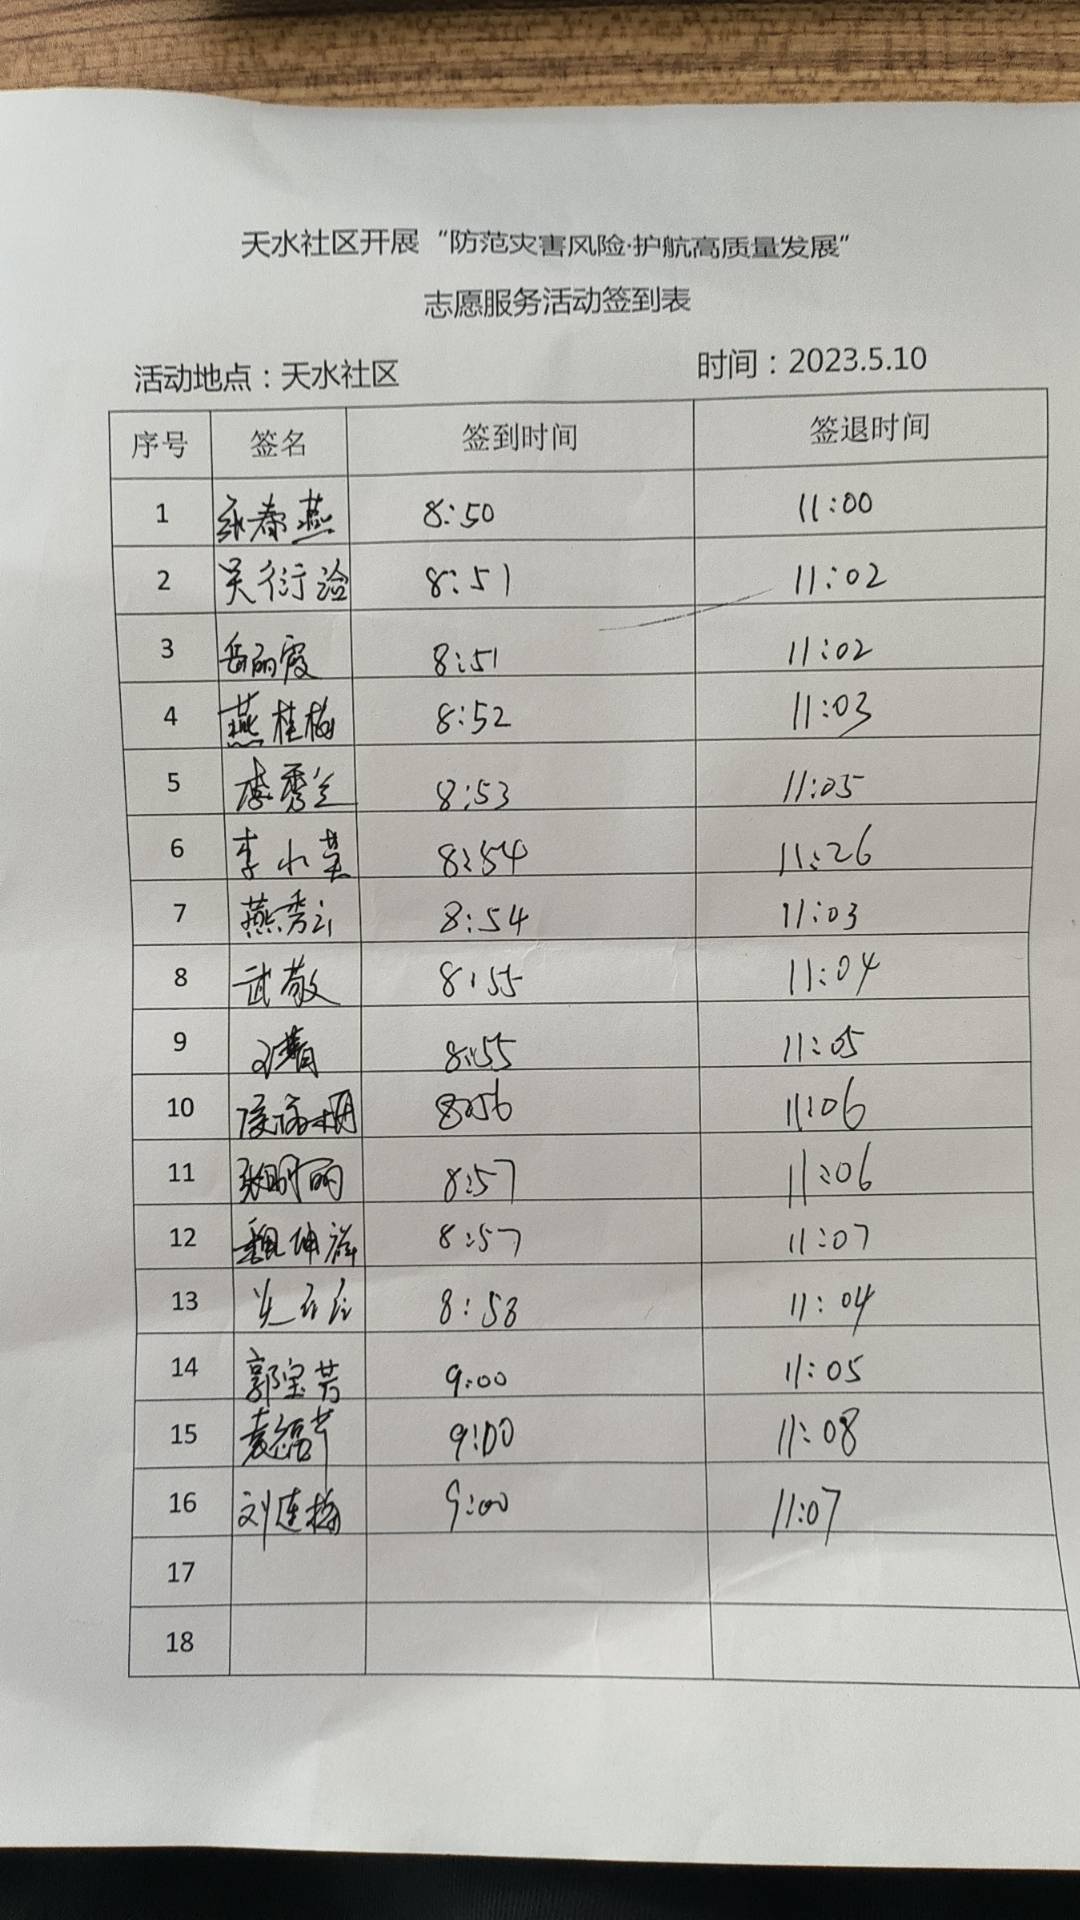 天水社区开展“防范灾害风险·护航高质量发展”
志愿服务活动签到表
活动地点：天水社区 时间：2023.5.10
序号 签名 签到时间 签退时间
1 春燕 8:50 11:00
2 吴衍 8:51 11:02
3 岳丽霞 8:51 11:02
4 燕桂梅 8:52 11:03
5 李秀兰 8:53 11:05
6 李小英 8:54 11:26
7 燕秀云 8:54 11:03
8 武敬 8:55 11:04
9 8:55 11:05
10 8:56 11:06
11 张明丽 8:57 11:06
12 魏坤 8:57 11:07
13 8:58 11:04
14 郭宝芳 9:00 11:05
15 袁福芹 9:00 11:08
16 刘连梅 9:00 11:07
17
18